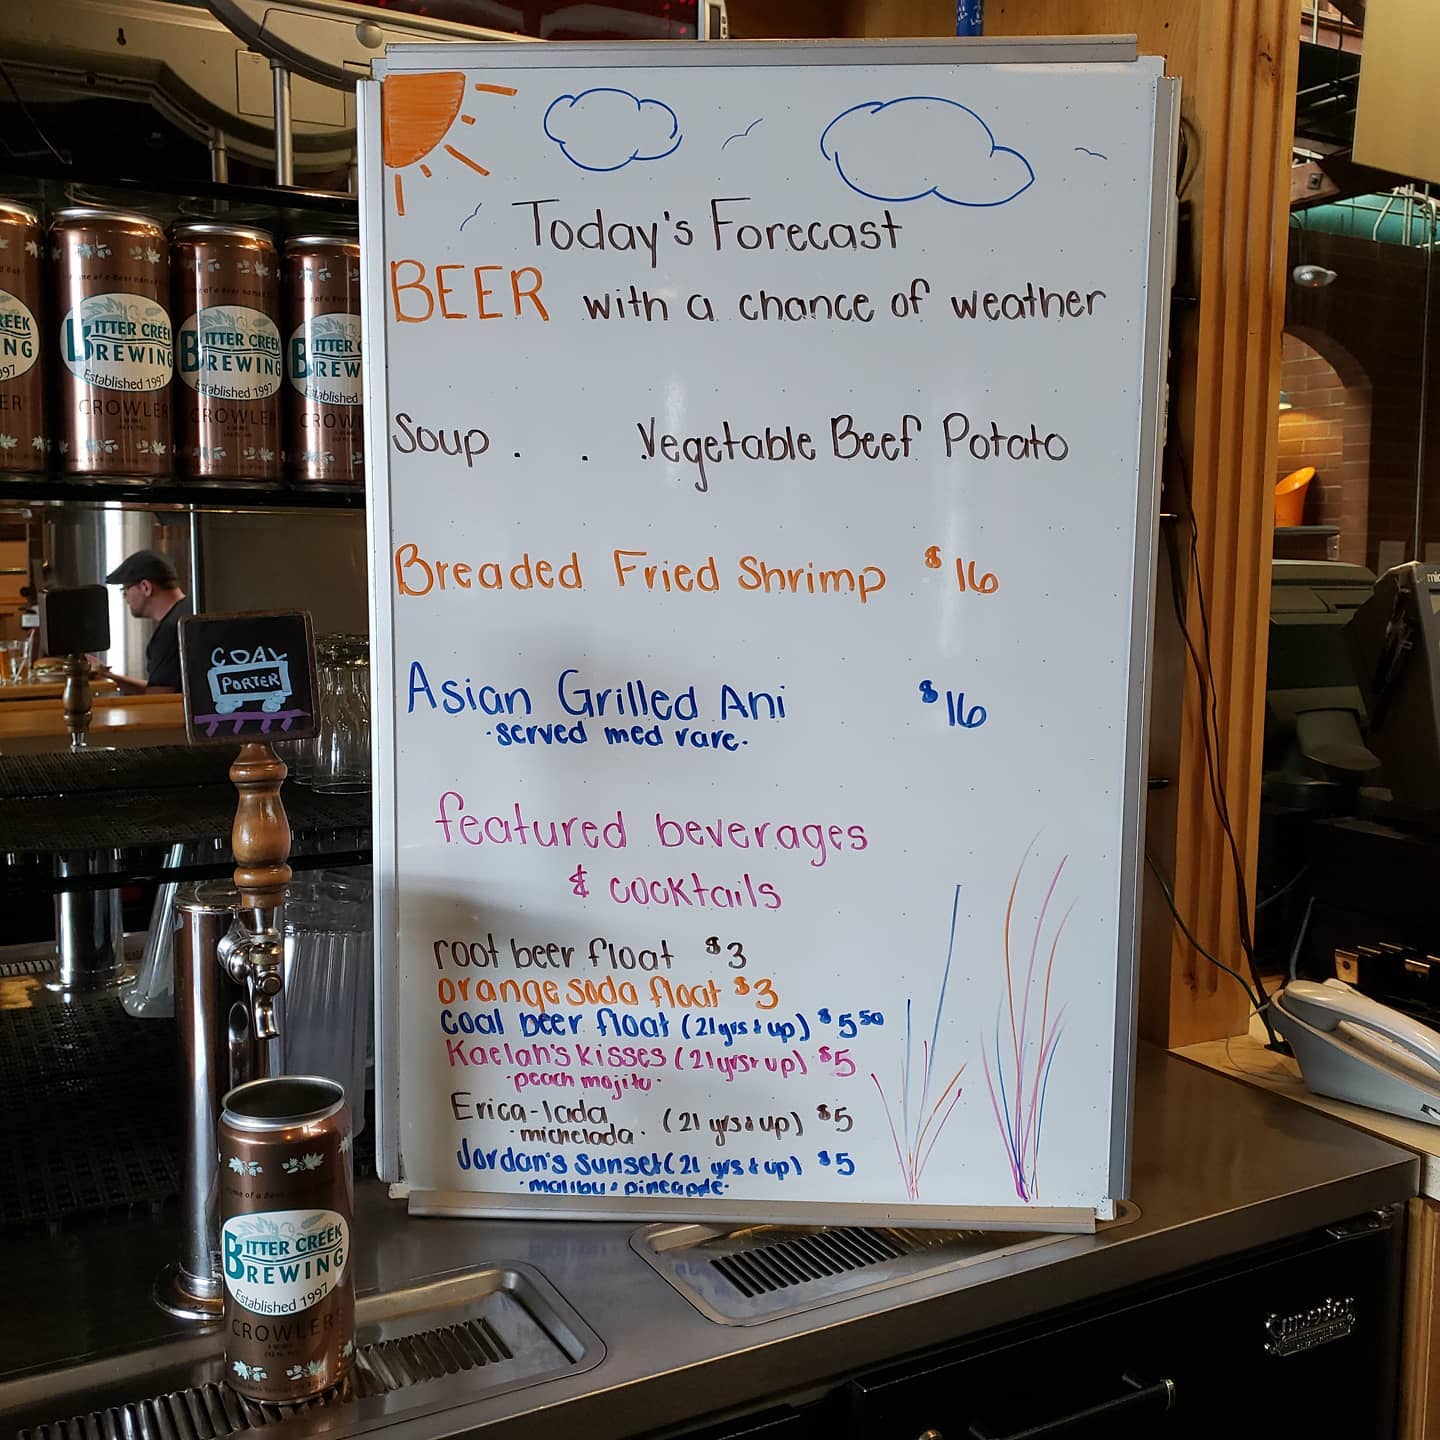 Today's Forecast
BEER with a chance of weather
Soup . . . Vegetable Beef Potato
Breaded Fried Shrimp $16
Asian Grilled Ahi $16
·served med rare·
featured beverages
& cocktails
root beer float $3
orange soda float $3
coal beer float (21yrs & up) $5 50
Kaelah's Kisses (21yrs & up) $5
·peach mojito·
Erica-lada (21 yrs & up) $5
·michelada·
Jordan's Sunset (21 yrs & up) $5
·malibu & pineapple·
COAL
PORTER
BITTER CREEK
BREWING
Established 1997
CROWLER
BITTER CREEK
BREWING
Established 1997
CROWLER
BITTER CREEK
BREWING
Established 1997
CROWLER
Superior